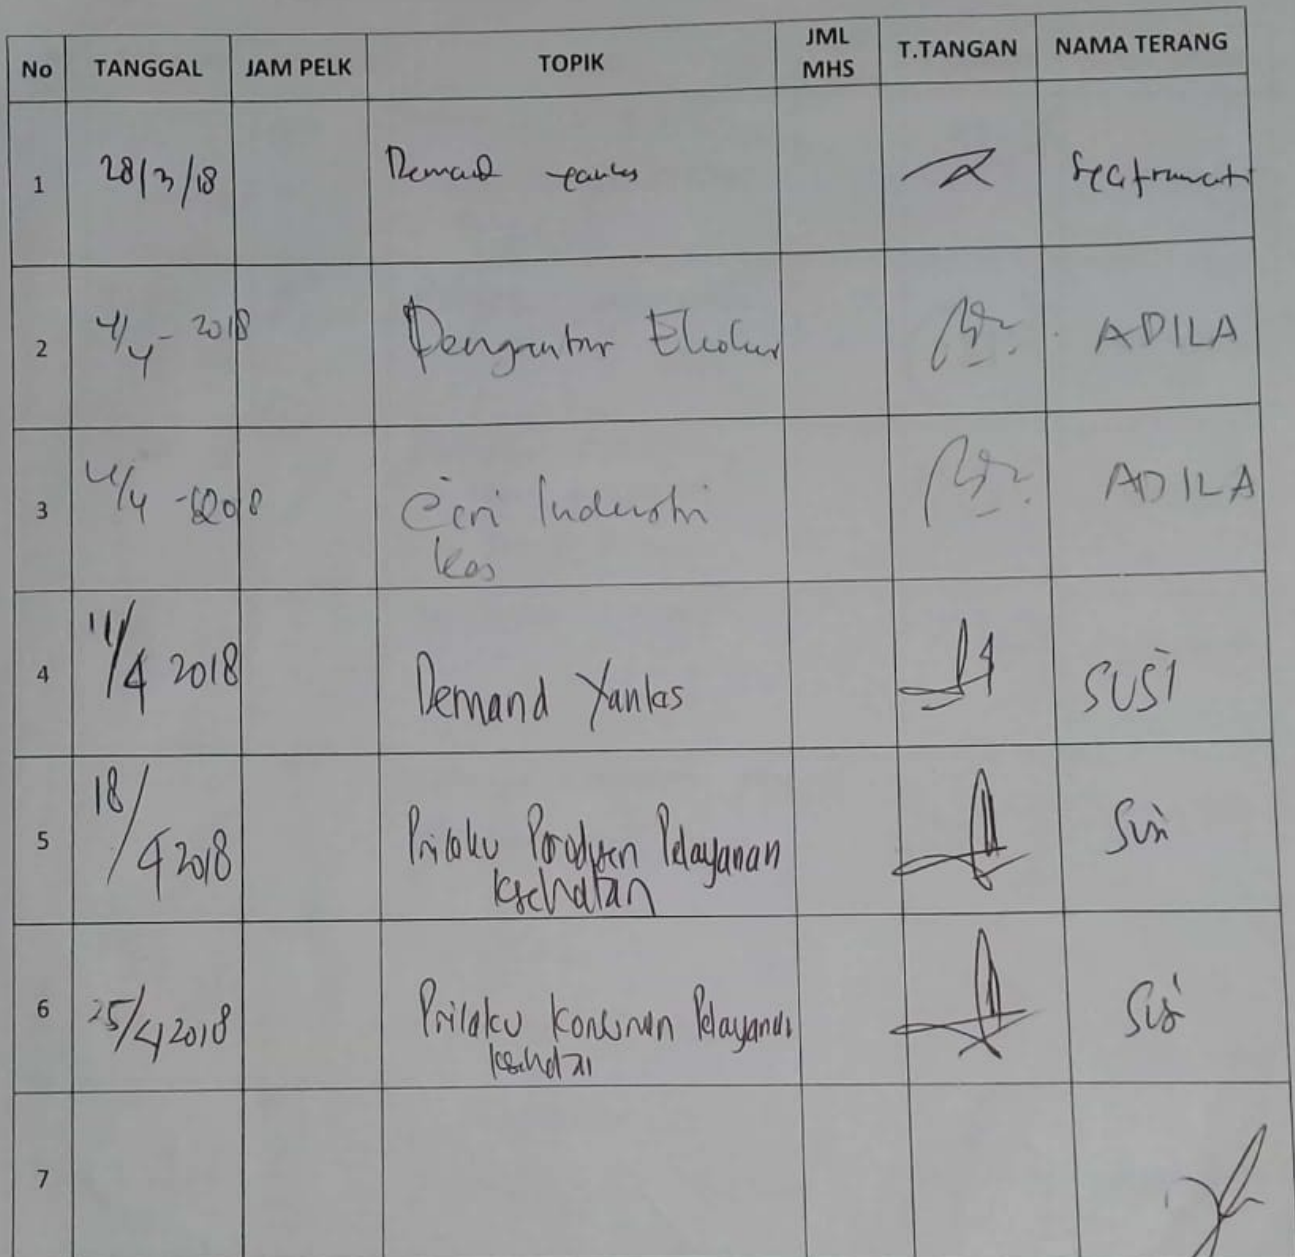 No TANGGAL JAM PELK TOPIK JML MHS T.TANGAN NAMA TERANG
1 28/3/18 Demand yankes
2 4/4 - 2018 Pengantar ADILA
3 4/4 - 2018 Ciri Industri ADILA
Kes
4 11/4 2018 Demand Yankes SUSI
5 18/4 2018 Prilaku Produsen Pelayanan Susi
Kesehatan
6 25/4 2018 Prilaku Konsumen Pelayanan Susi
kesehatan
7